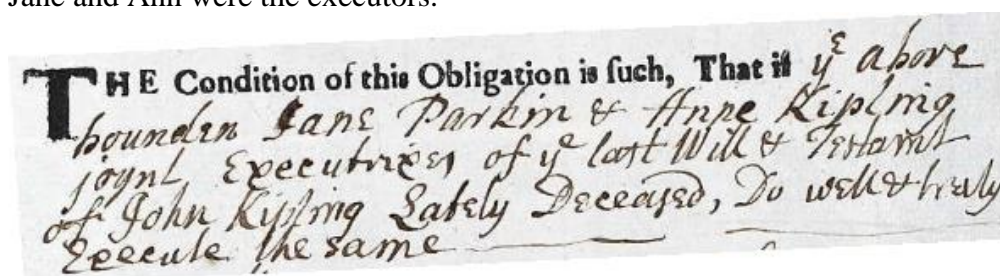 Jane and Ann were the executors.
THE Condition of this Obligation is ſuch, That if yᵉ above
bounden Jane Parkin & Anne Kipling
joynt Executrixes of yᵉ last Will & Testamt
of John Kipling Lately Deceased, Do well & truly
Execute the same